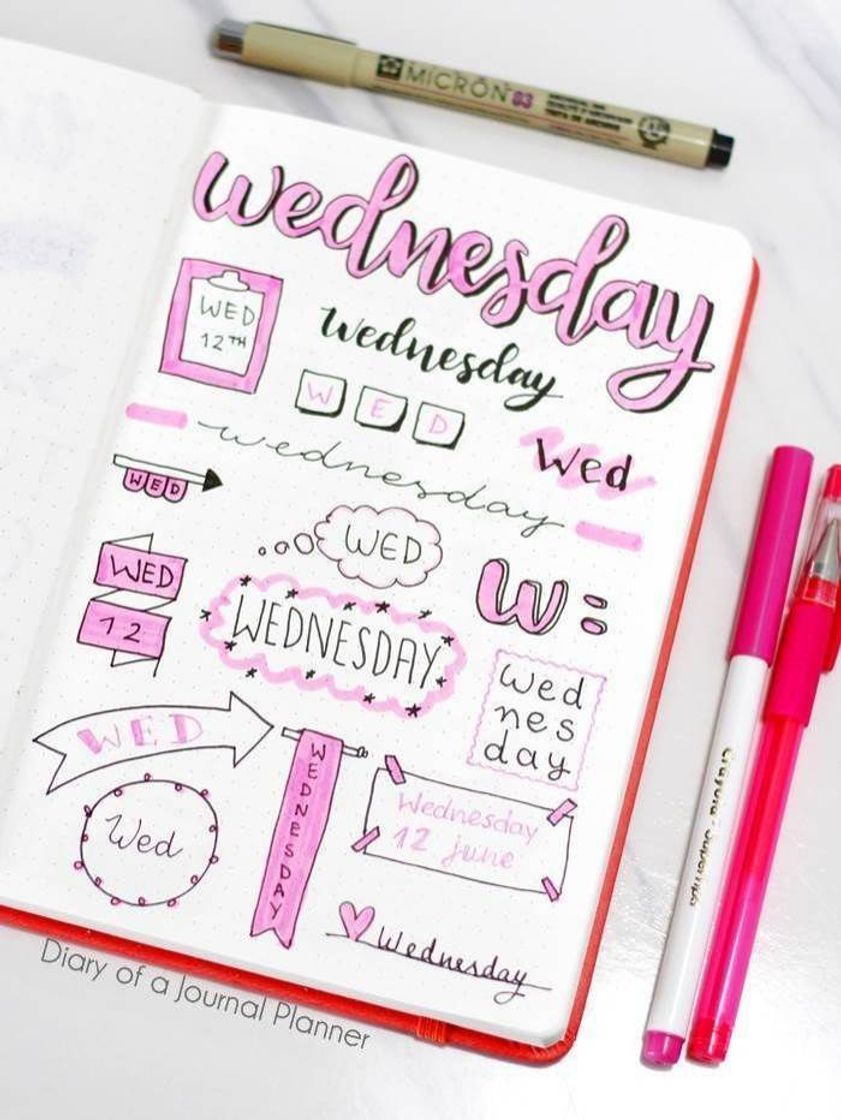 MICRON 03
wednesday
WED
12TH
Wednesday
W E D
Wed
wednesday
WED
WED
WED
12
WEDNESDAY
W:
Wed
nes
day
WED
WEDNESDAY
Wednesday
12 june
Wed
Wednesday
Crayola - Supertips
Diary of a Journal Planner